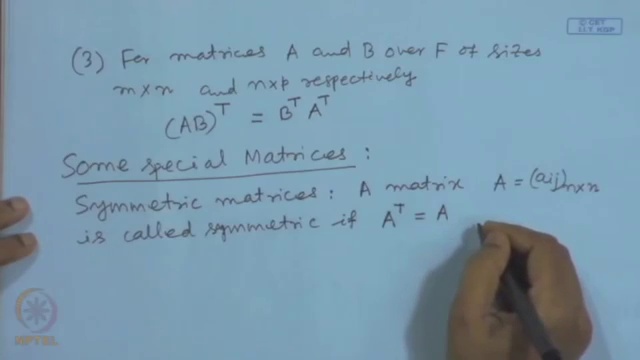 © CET
I.I.T. KGP
(3) For matrices A and B over F of sizes
m×n and n×p respectively
(AB)^T = B^T A^T
Some special Matrices :
Symmetric matrices : A matrix A = (aij)n×n
is called symmetric if A^T = A
NPTEL